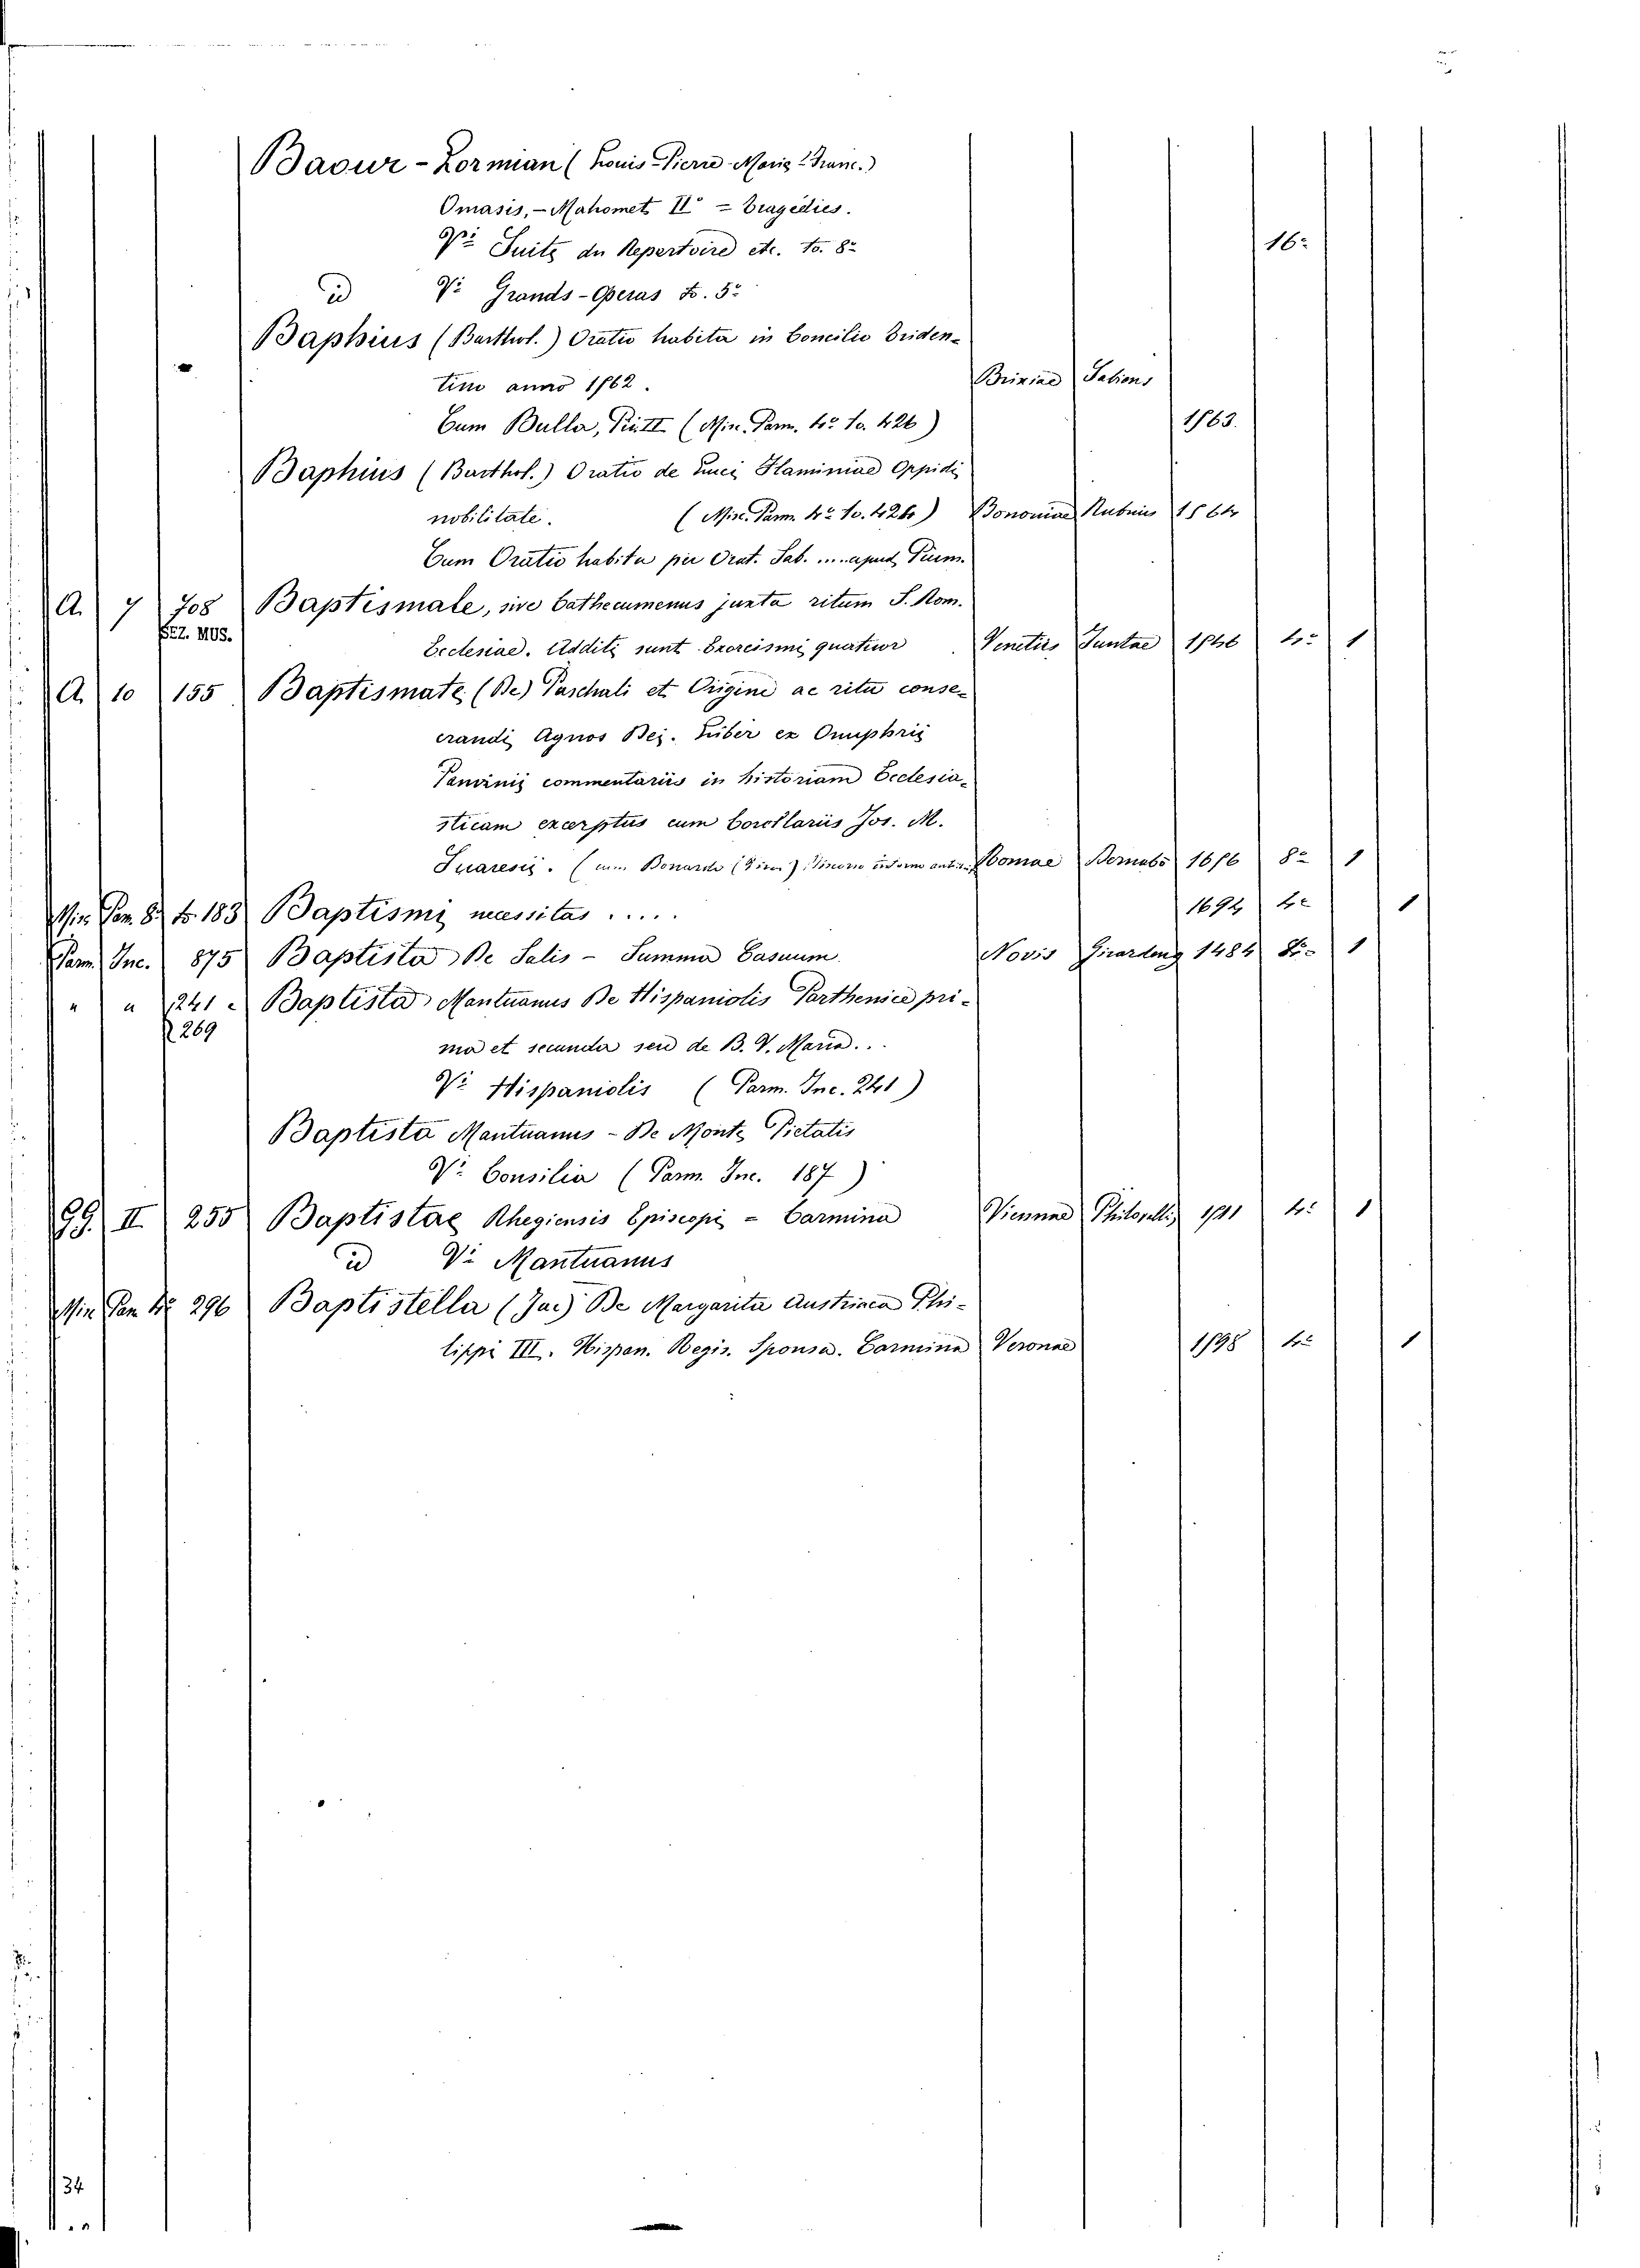 Baour-Lormian (Louis Pierre-Marie-Franc.)
Omasis, - Mahomet II° = Tragédies.
V: Suite du Repertoire etc. to. 8° 16°
id V: Grands-Operas to. 5°
Baphius (Barthol.) Oratio habita in Concilio Triden-
tino anno 1562. Brixiae Sabiens
Cum Bulla, Pii II (Mis. Parm. 4° to. 426) 1563.
Baphius (Barthol.) Oratio de Luci Flaminiae Oppidi
nobilitate. (Misc. Parm. 4° to. 426) Bononiae Rubeus 1564
Cum Oratio habita per Orat. Sab. .... apud Pium.
A. 7 708 Baptismale, sive Cathecumenus juxta ritum S. Rom.
SEZ. MUS.
Ecclesiae. Additi sunt Exorcismi quatuor Venetiis Juntae 1566 4° 1
A. 10 155 Baptismate (De) Paschali et Origine ac ritu conse-
crandi Agnos Dei. Liber ex Onuphrii
Panvinii commentariis in historiam Ecclesia-
sticam excerptus cum Corollariis Jos. M.
Suaresii. (cum Bonardo Romae Bernabo 1656 8° 1
Mis. Parm. 8° to. 183 Baptismi necessitas ..... 1694 4° 1
Parm. Inc. 875 Baptista De Salis - Summa Casuum. Novis Girardeng 1484 8° 1
" " 241 e Baptista Mantuanus De Hispaniolis Parthenice pri-
269
ma et secunda seu de B. V. Maria...
V: Hispaniolis (Parm. Inc. 241)
Baptista Mantuanus - De Monte Pietatis
V: Consilia (Parm. Inc. 187)
GG. II 255 Baptistae Rhegiensis Episcopi = Carmina Viennae 1511 4° 1
id V: Mantuanus
Mis. Parm. 4° 296 Baptistella (Jac.) De Margarita Austriaca Phi-
lippi III. Hispan. Regis. Sponsa. Carmina Veronae 1598 4° 1
34